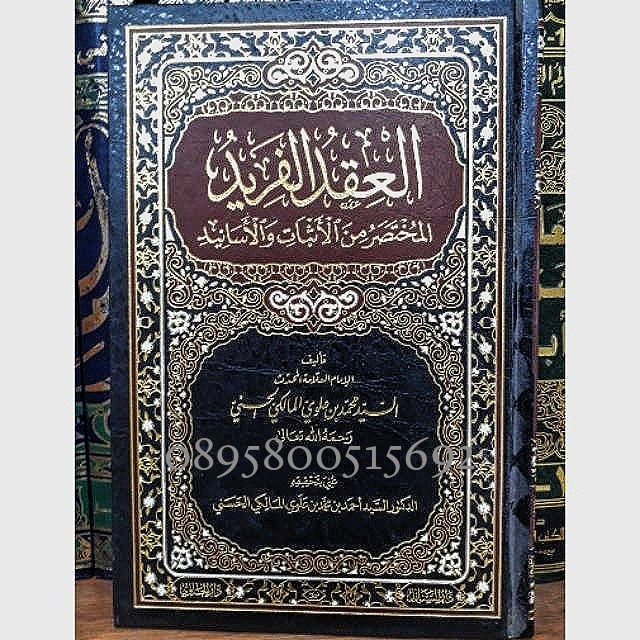 العِقْدُ الفَرِيدُ
المُخْتَصَرُ مِنَ الأَثْبَاتِ وَالأَسَانِيدِ
تأليف
الإمام العلامة المحدث
السيد محمد بن علوي المالكي الحسني
رحمه الله تعالى
0895800515692
عني بتحقيقه
الدكتور السيد أحمد بن محمد بن علوي المالكي الحسني